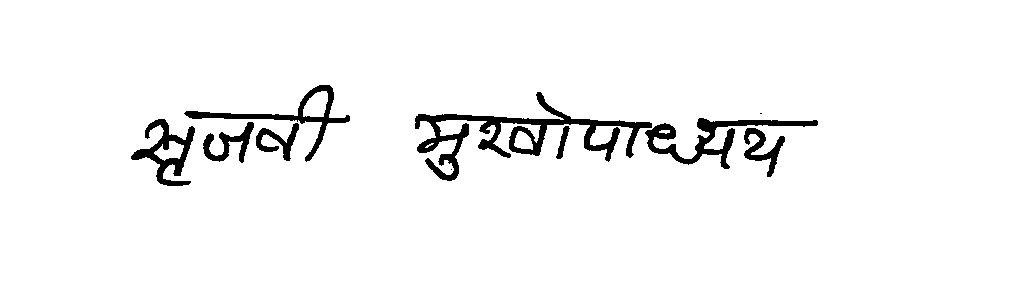 सृजवी मुखोपाध्यय